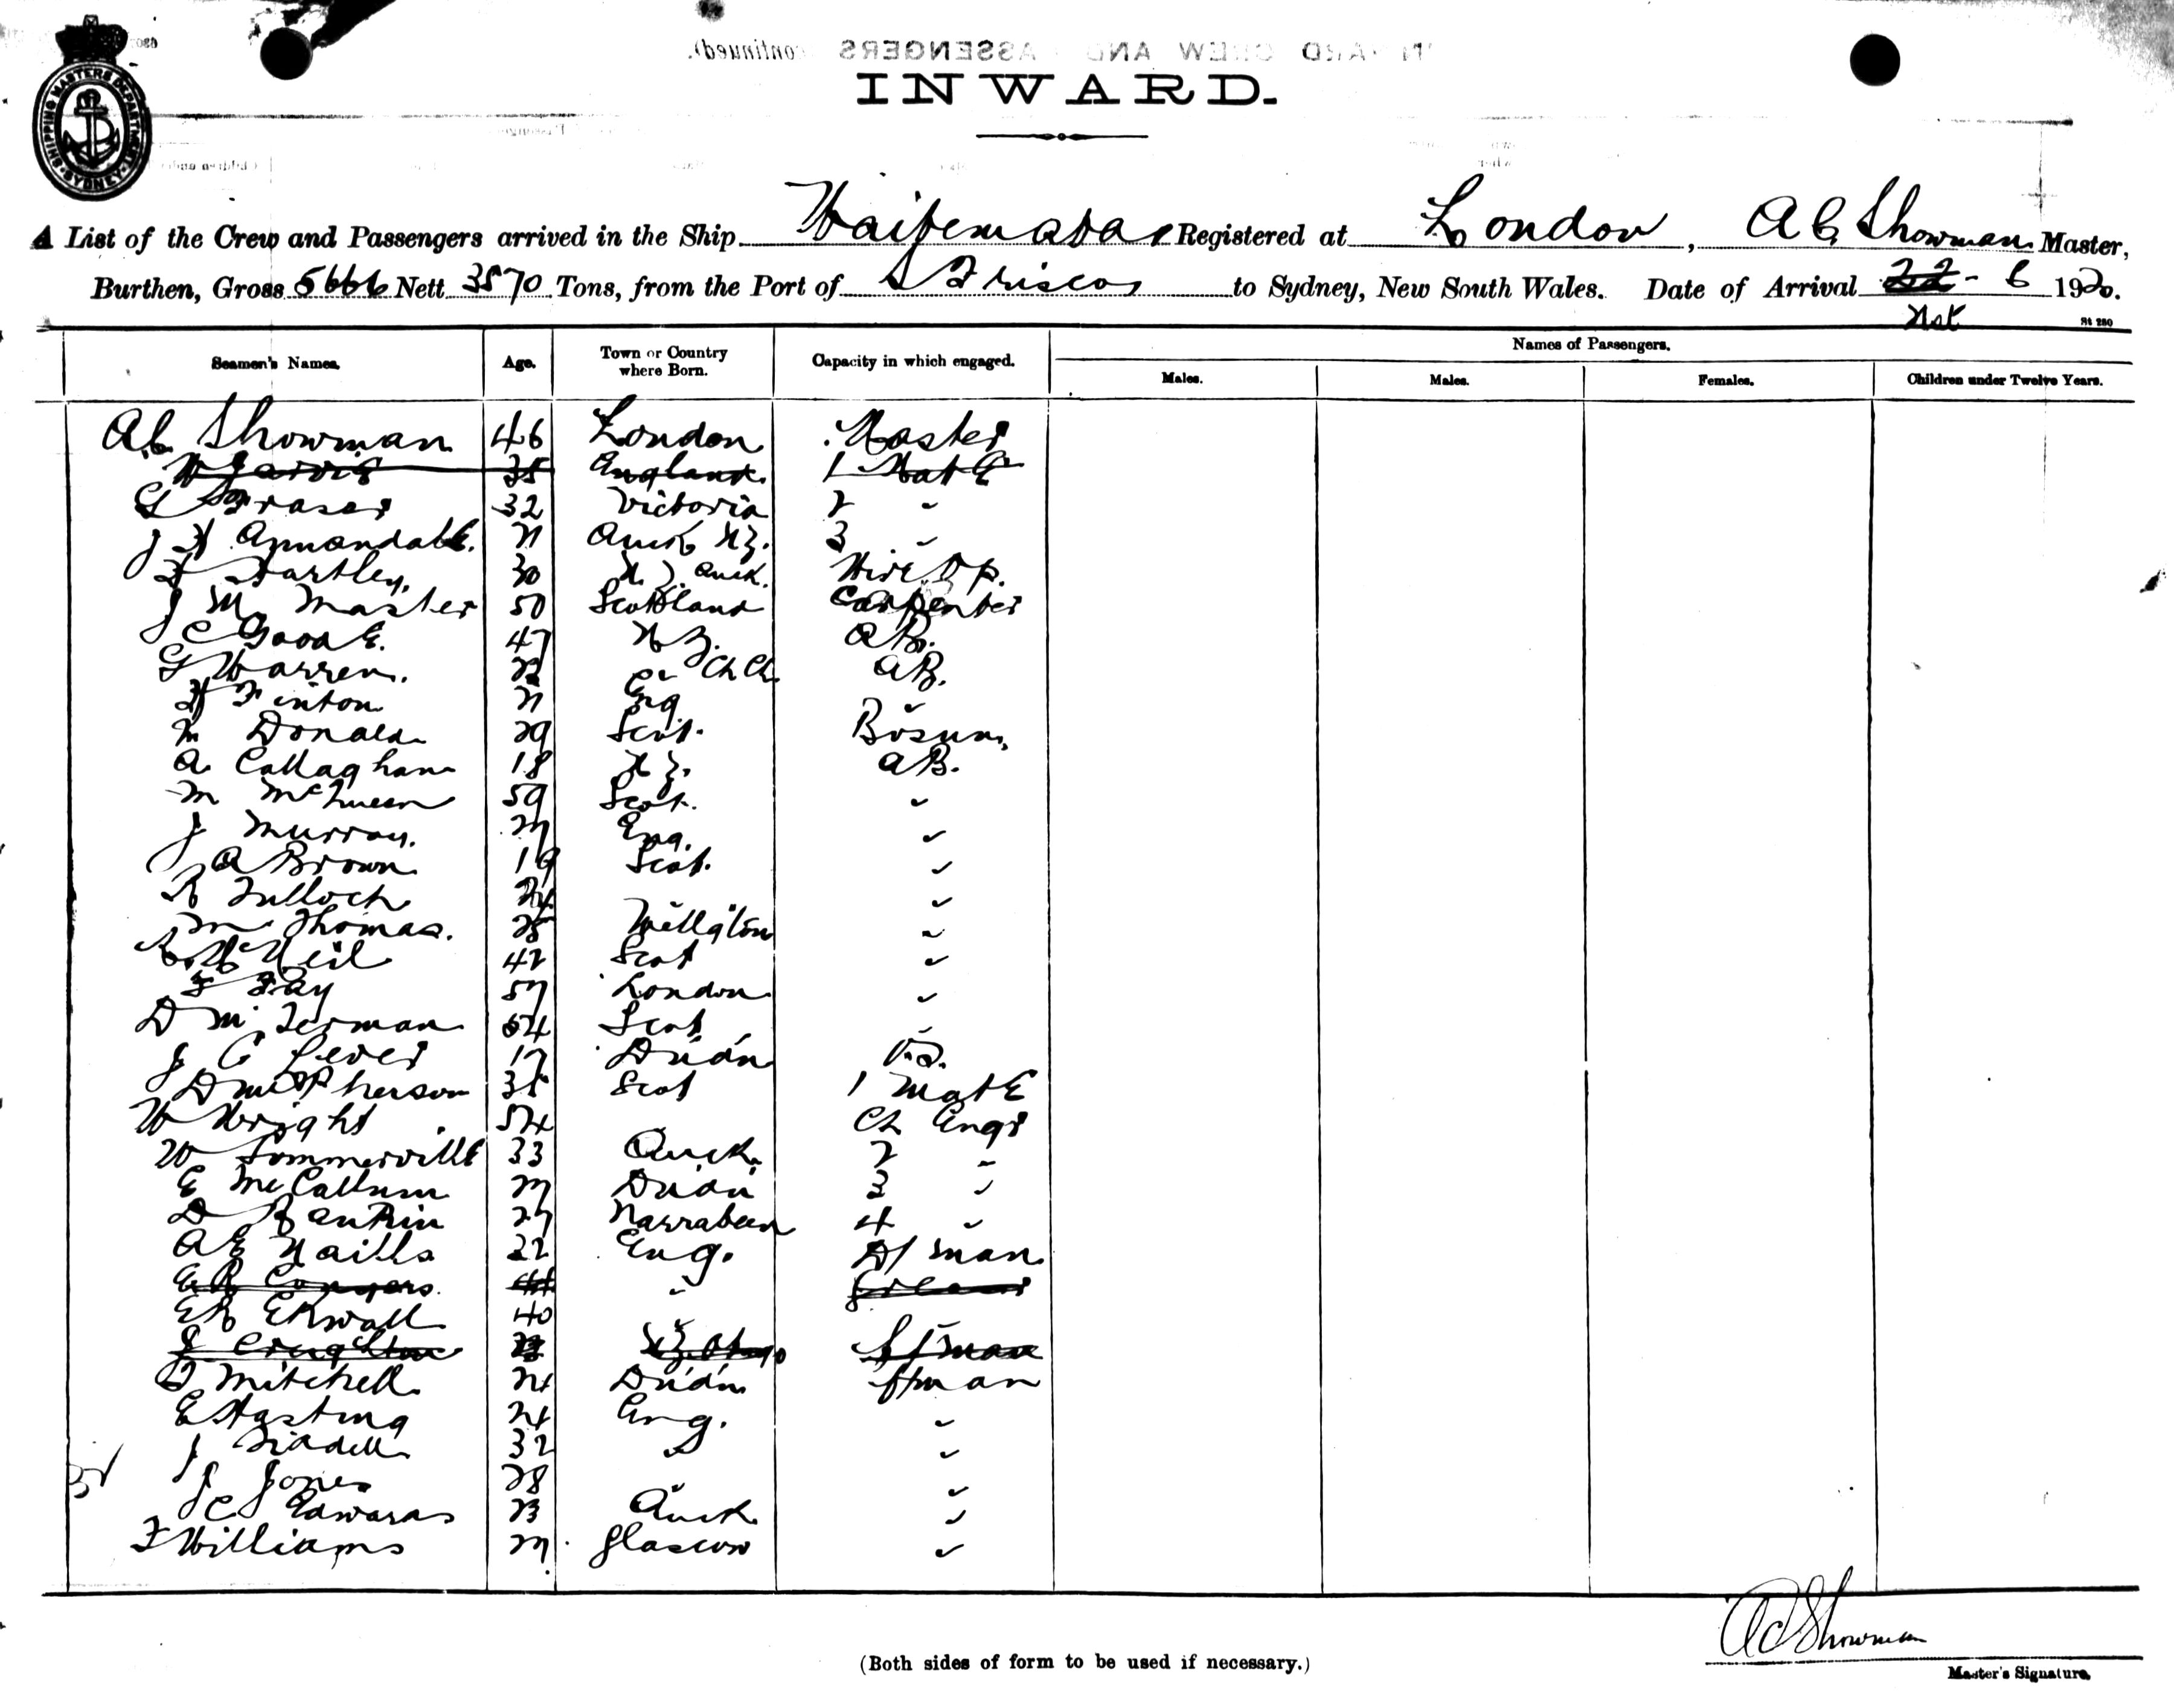 SHIPPING MASTERS DEPARTMENT SYDNEY
INWARD.
A List of the Crew and Passengers arrived in the Ship Waitemata Registered at London, A C Showman Master,
Burthen, Gross 5666 Nett 3570 Tons, from the Port of S Frisco to Sydney, New South Wales. Date of Arrival 22 - 6 1920.
21st St 280
Seamen's Names. Age. Town or Country where Born. Capacity in which engaged. Names of Passengers.
Males. Males. Females. Children under Twelve Years.
A C Showman 46 London Master
35 England 1 Mate
G Fraser 32 Victoria 2 "
J H Annandale. 21 Auck NZ. 3 "
Hartley. 30 N.Z. Auck. Wire Op.
J Mc Master 50 Scotland Carpenter
C Goode. 47 N Z. AB.
G Warren. Ch Ch. AB.
H Finton 21 Eng "
Mc Donald 29 Scot. Bosun.
A Callaghan 18 NZ. AB.
M McQueen 59 Scot. "
J Murray. 27 Eng. "
A Brown 19 Scot. "
R Tulloch 24 "
M Thomas. 25 Wellgton "
R McNeil 42 Scot "
F Fay 57 London "
D Mc 64 Scot "
J C Lever 17 D'din O.S.
D McPherson 35 Scot 1 Mate
W Wright 54 Ch Engr
W Sommerville 33 Auck. 2 "
E McCallum 27 D'din 3 "
D Rankin 27 Narrabeen 4 "
A E Naills 22 Eng. D/man
E R Conyers. 44 "
E R Ekwall 40
J Creighton f/man
T Mitchell 24 D'din f/man
E Hasting 24 Eng. "
J 32 " "
J Jones 28 "
C Edwards 23 Auck "
F Williams 27 Glascow "
A C Showman
(Both sides of form to be used if necessary.)
Master's Signature.